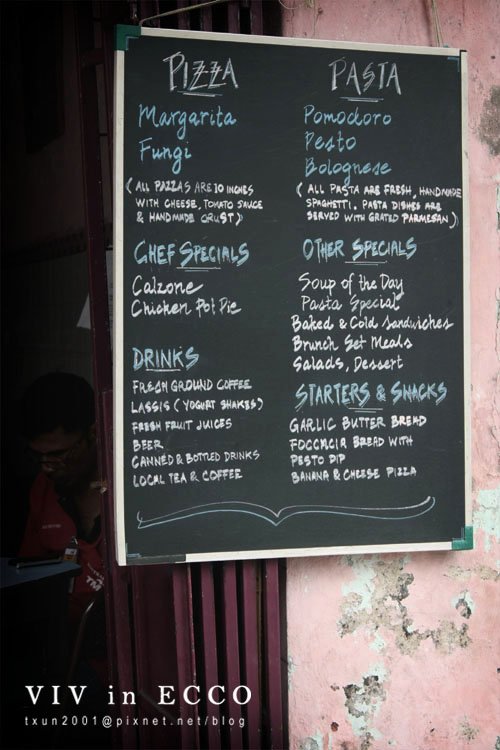 PIZZA
Margarita
Fungi
(ALL PAZZAS ARE 10 INCHES
WITH CHEESE, TOMATO SAUCE
& HANDMADE CRUST)
CHEF SPECIALS
Calzone
Chicken Pot Pie
DRINKS
FRESH GROUND COFFEE
LASSIS (YOGURT SHAKES)
FRESH FRUIT JUICES
BEER
CANNED & BOTTLED DRINKS
LOCAL TEA & COFFEE
PASTA
Pomodoro
Pesto
Bolognese
(ALL PASTA ARE FRESH, HANDMADE
SPAGHETTI. PASTA DISHES ARE
SERVED WITH GRATED PARMESAN)
OTHER SPECIALS
Soup of the Day
Pasta Special
Baked & Cold Sandwiches
Brunch Set Meals
Salads, Dessert
STARTERS & SNACKS
GARLIC BUTTER BREAD
FOCCACIA BREAD WITH
PESTO DIP
BANANA & CHEESE PIZZA
VIV in ECCO
txun2001@pixnet.net/blog